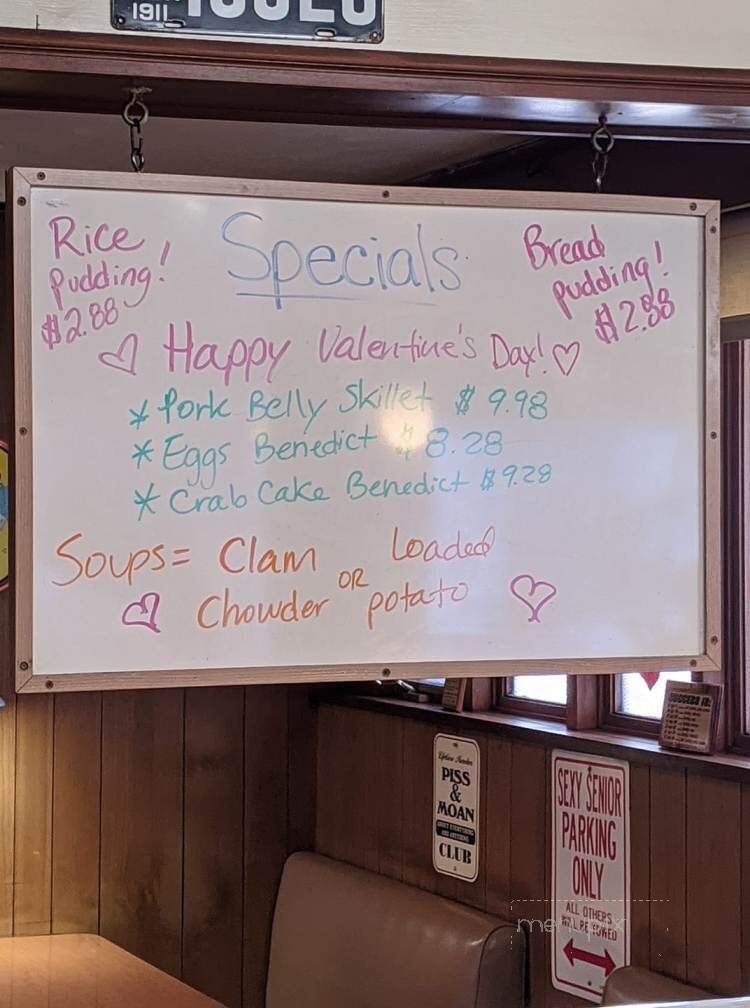 1911
Rice
pudding!
$2.88
Specials
Bread
pudding!
$2.88
Happy Valentine's Day!
* Pork Belly Skillet $ 9.98
* Eggs Benedict $ 8.28
* Crab Cake Benedict $ 9.28
Soups = Clam
Chowder
OR
Loaded
potato
Lifetime Member
PISS
&
MOAN
ABOUT EVERYTHING
AND ANYTHING
CLUB
SEXY SENIOR
PARKING
ONLY
ALL OTHERS
WILL BE TOWED
SUCCESS IS:
menupix